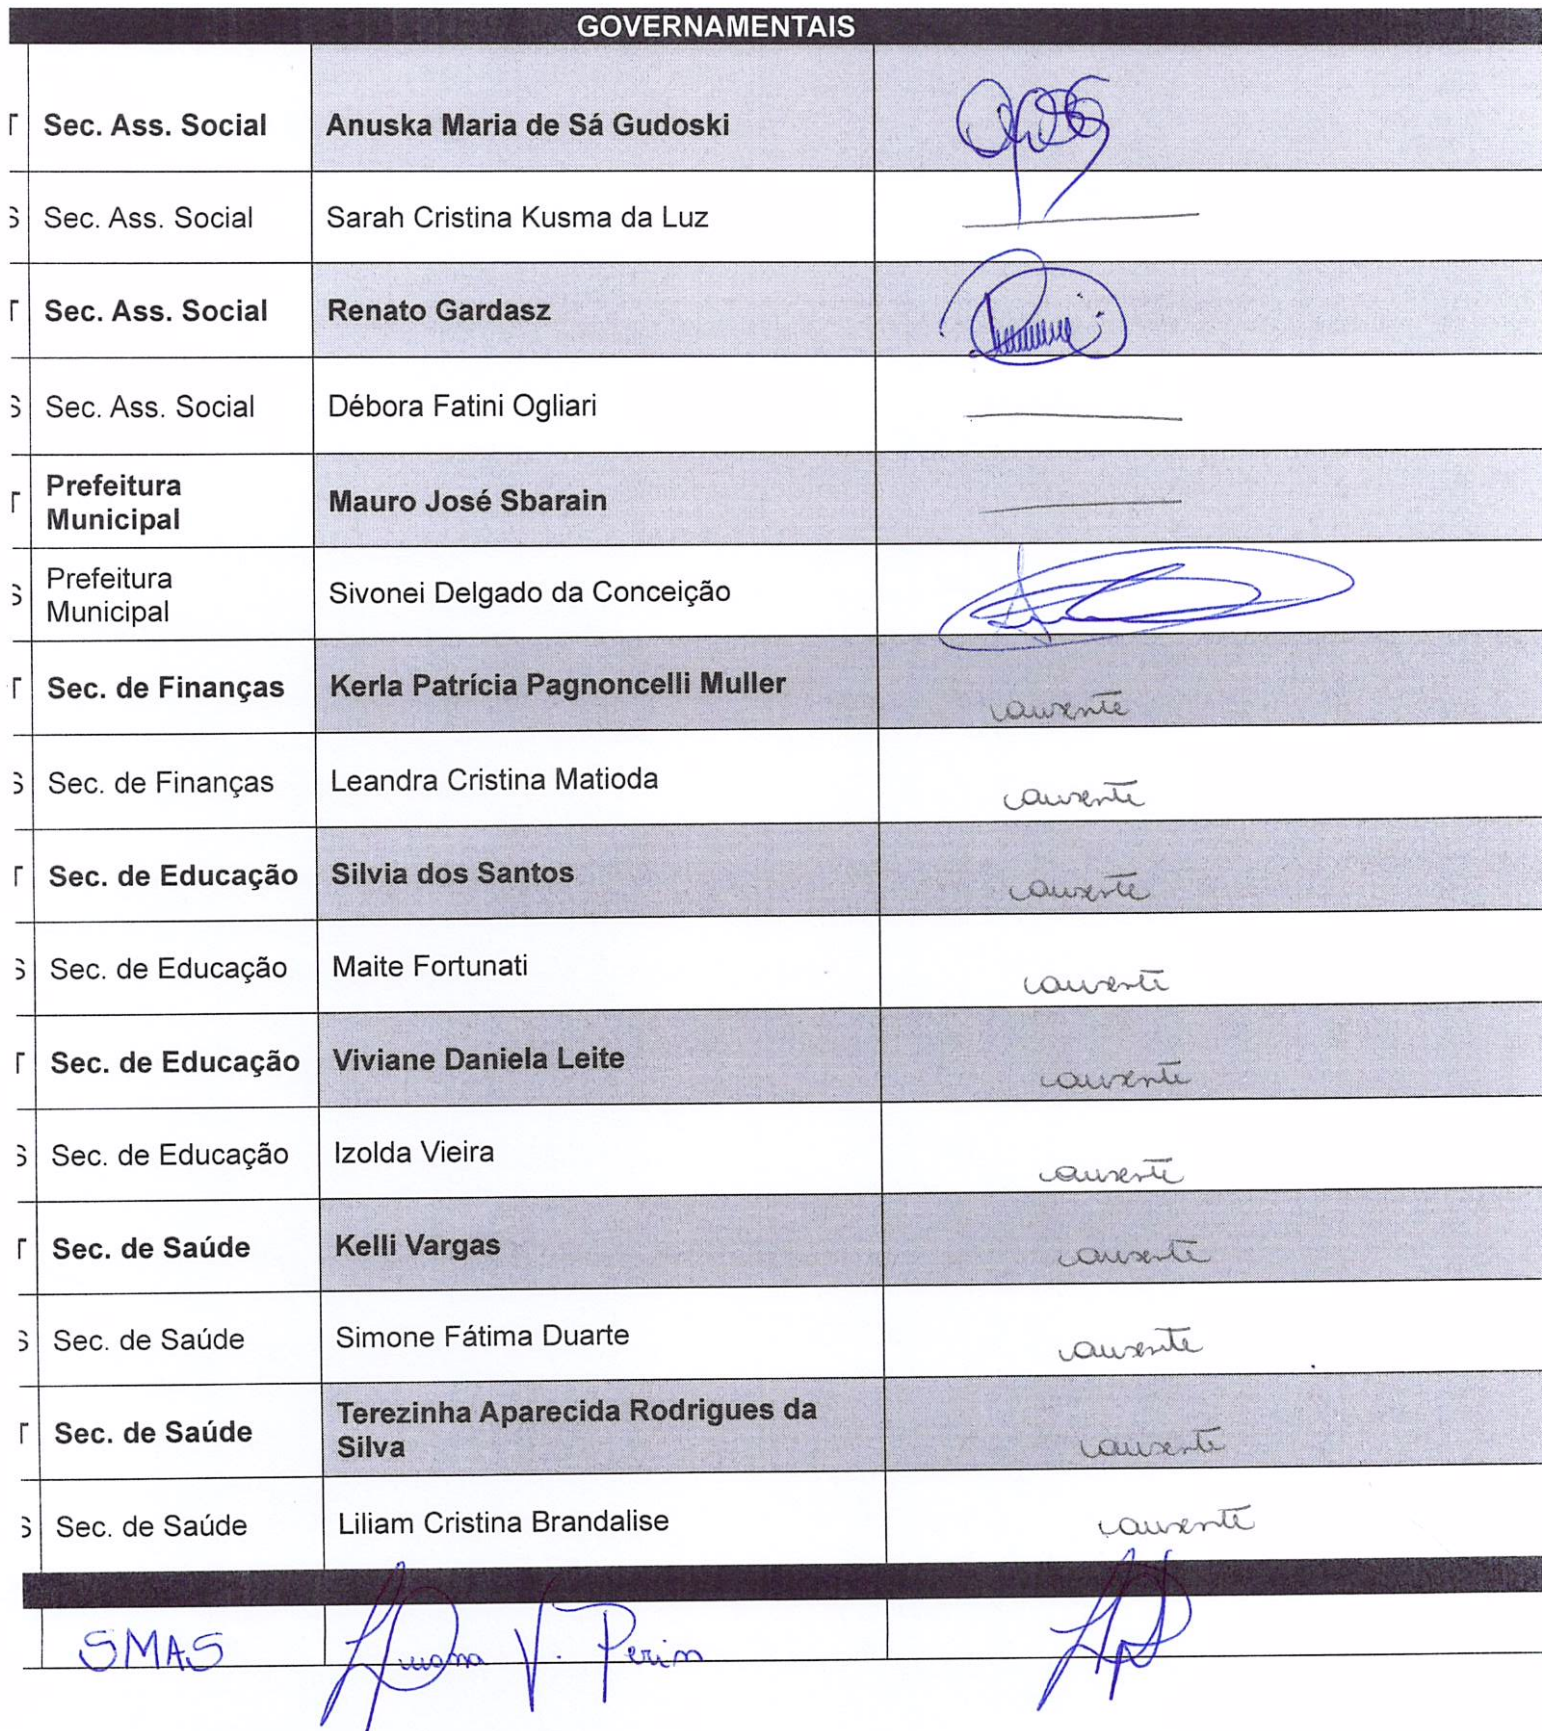 GOVERNAMENTAIS
T Sec. Ass. Social Anuska Maria de Sá Gudoski
S Sec. Ass. Social Sarah Cristina Kusma da Luz
T Sec. Ass. Social Renato Gardasz
S Sec. Ass. Social Débora Fatini Ogliari
T Prefeitura Municipal Mauro José Sbarain
S Prefeitura Municipal Sivonei Delgado da Conceição
T Sec. de Finanças Kerla Patrícia Pagnoncelli Muller ausente
S Sec. de Finanças Leandra Cristina Matioda ausente
T Sec. de Educação Silvia dos Santos ausente
S Sec. de Educação Maite Fortunati ausente
T Sec. de Educação Viviane Daniela Leite ausente
S Sec. de Educação Izolda Vieira ausente
T Sec. de Saúde Kelli Vargas ausente
S Sec. de Saúde Simone Fátima Duarte ausente
T Sec. de Saúde Terezinha Aparecida Rodrigues da
Silva ausente
S Sec. de Saúde Liliam Cristina Brandalise ausente
SMAS V. Perin